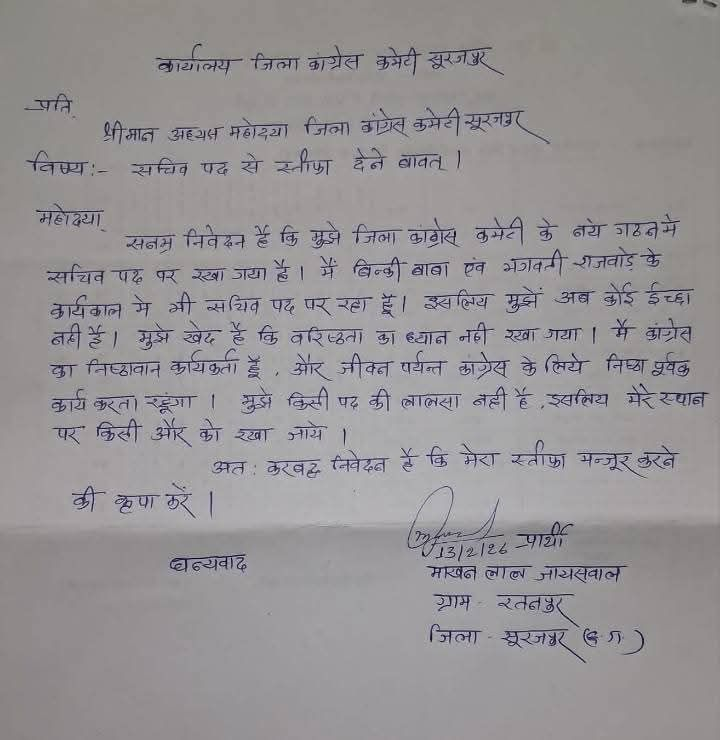 कार्यालय जिला कांग्रेस कमेटी सूरजपुर
प्रति,
श्रीमान अध्यक्ष महोदया जिला कांग्रेस कमेटी सूरजपुर
विषय:- सचिव पद से स्तीफा देने बावत्।
महोदया,
सनम्र निवेदन है कि मुझे जिला कांग्रेस कमेटी के नये गठन मे
सचिव पद पर रखा गया है। मैं बिन्की बाबा एवं भगवती राजवाड़े के
कार्यकाल मे भी सचिव पद पर रहा हूँ। इसलिय मुझें अब कोई ईच्छा
नही है। मुझे खेद है कि वरिष्ठता का ध्यान नही रखा गया। मै कांग्रेस
का निष्ठावान कार्यकर्ता हूँ, और जीवन पर्यन्त कांग्रेस के लिये निष्ठा पूर्वक
कार्य करता रहूंगा। मुझे किसी पद की लालसा नही है, इसलिय मेरे स्थान
पर किसी और को रखा जाये।
अत: करबद्ध निवेदन है कि मेरा स्तीफा मन्जूर करने
की कृपा करें।
13/2/26 प्रार्थी
धन्यवाद
माखन लाल जायसवाल
ग्राम - रतनपुर
जिला - सूरजपुर (छ.ग.)